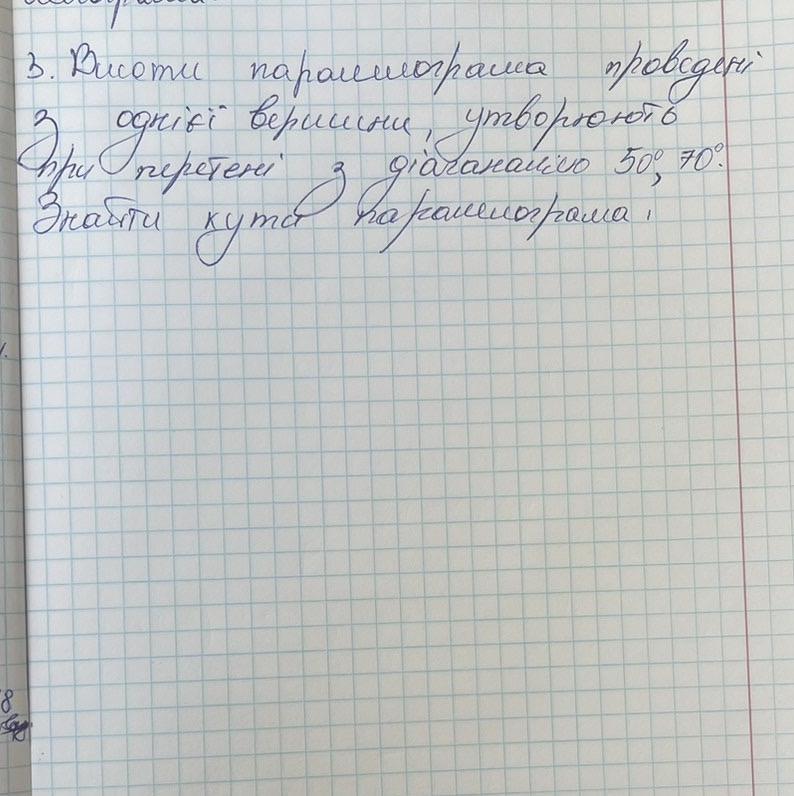 3. Висоти паралелограма проведені
з однієї вершини, утворюють
при перетені з діаганаллю 50°, 70°.
Знайти кути паралелограма.
8